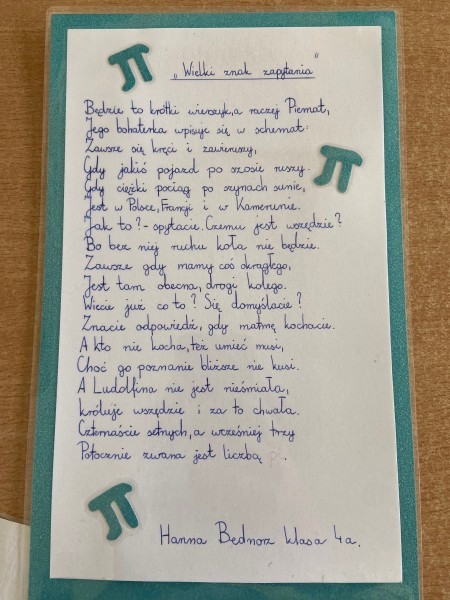 „Wielki znak zapytania"
Będzie to krótki wierszyk, a raczej Piemat,
Jego bohaterka wpisuje się w schemat:
Zawsze się kręci i zawieruszy,
Gdy jakiś pojazd po szosie ruszy.
Gdy ciężki pociąg po szynach sunie,
Jest w Polsce, Francji i w Kamerunie.
Jak to? - spytacie. Czemu jest wszędzie?
Bo bez niej ruchu koła nie będzie.
Zawsze gdy mamy coś okrągłego,
Jest tam obecna, drogi kolego.
Wiecie już co to? Się domyślacie?
Znacie odpowiedź, gdy matmę kochacie.
A kto nie kocha, też umieć musi,
Choć go poznanie bliższe nie kusi.
A Ludolfina nie jest nieśmiała,
króluje wszędzie i za to chwała.
Czternaście setnych, a wcześniej trzy
Potocznie zwana jest liczbą .
Hanna Bednorz klasa 4a.
π
π
π